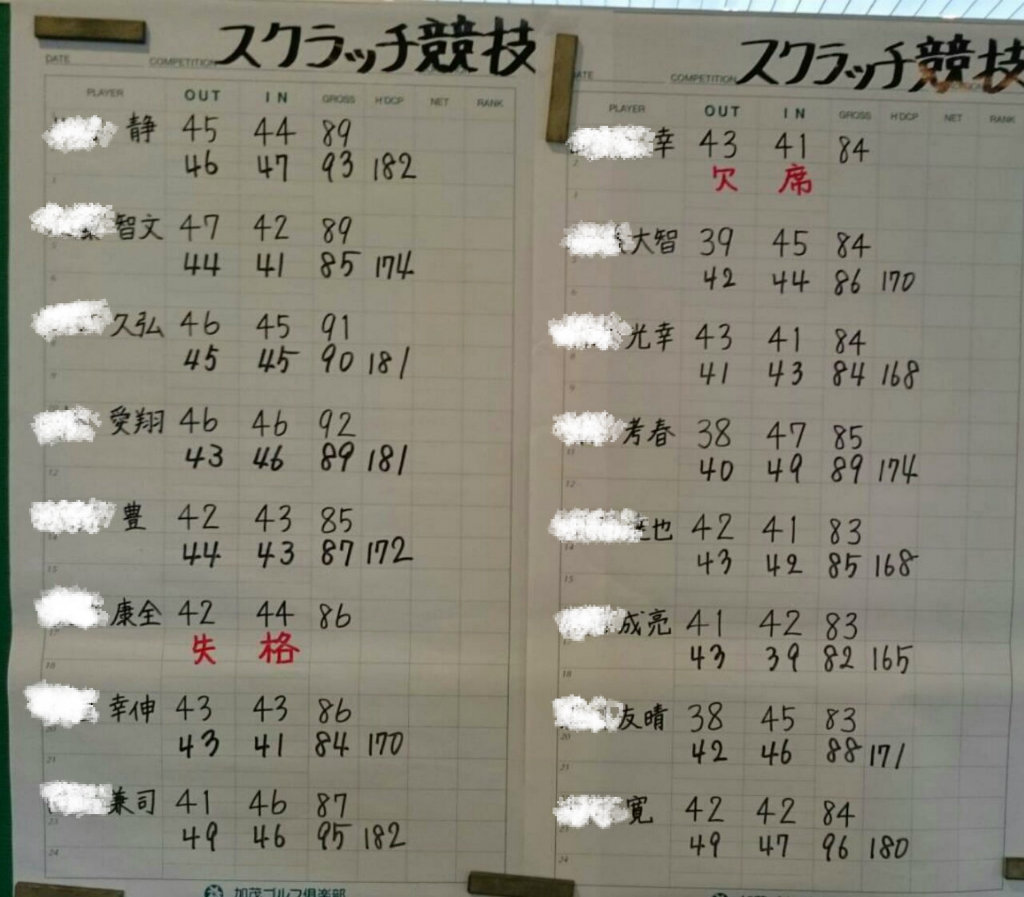 スクラッチ競技
DATE COMPETITION
PLAYER OUT IN GROSS H'DCP NET RANK
静 45 44 89
46 47 93 182
智文 47 42 89
44 41 85 174
久弘 46 45 91
45 45 90 181
愛翔 46 46 92
43 46 89 181
豊 42 43 85
44 43 87 172
康全 42 44 86
失格
幸伸 43 43 86
43 41 84 170
兼司 41 46 87
49 46 95 182
加茂ゴルフ倶楽部
スクラッチ競技
COMPETITION
PLAYER OUT IN GROSS H'DCP NET RANK
幸 43 41 84
欠席
大智 39 45 84
42 44 86 170
光幸 43 41 84
41 43 84 168
考春 38 47 85
40 49 89 174
也 42 41 83
43 42 85 168
成亮 41 42 83
43 39 82 165
友晴 38 45 83
42 46 88 171
寛 42 42 84
49 47 96 180